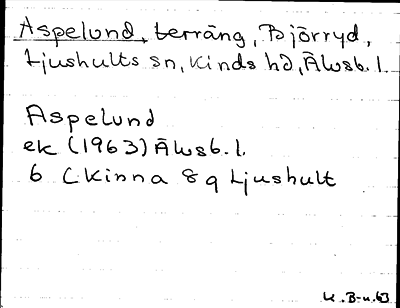 Aspelund, terräng, Björryd,
Ljushults sn, Kinds hd, Älvsb. l.
Aspelund
ek (1963) Älvsb. l.
6 C Kinna 8 q Ljushult
K. B-u. 63